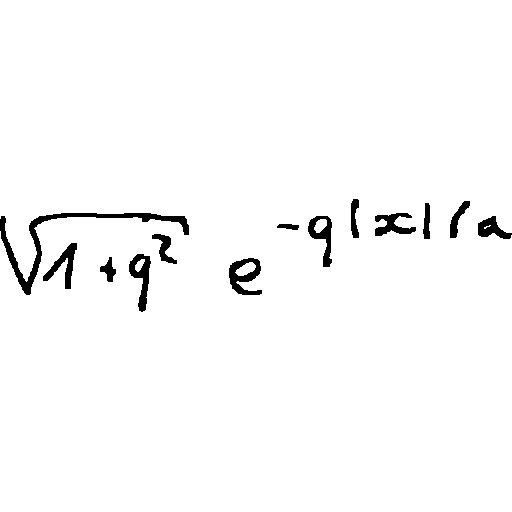 \sqrt{1+q^2} e^{-q|x|/a}